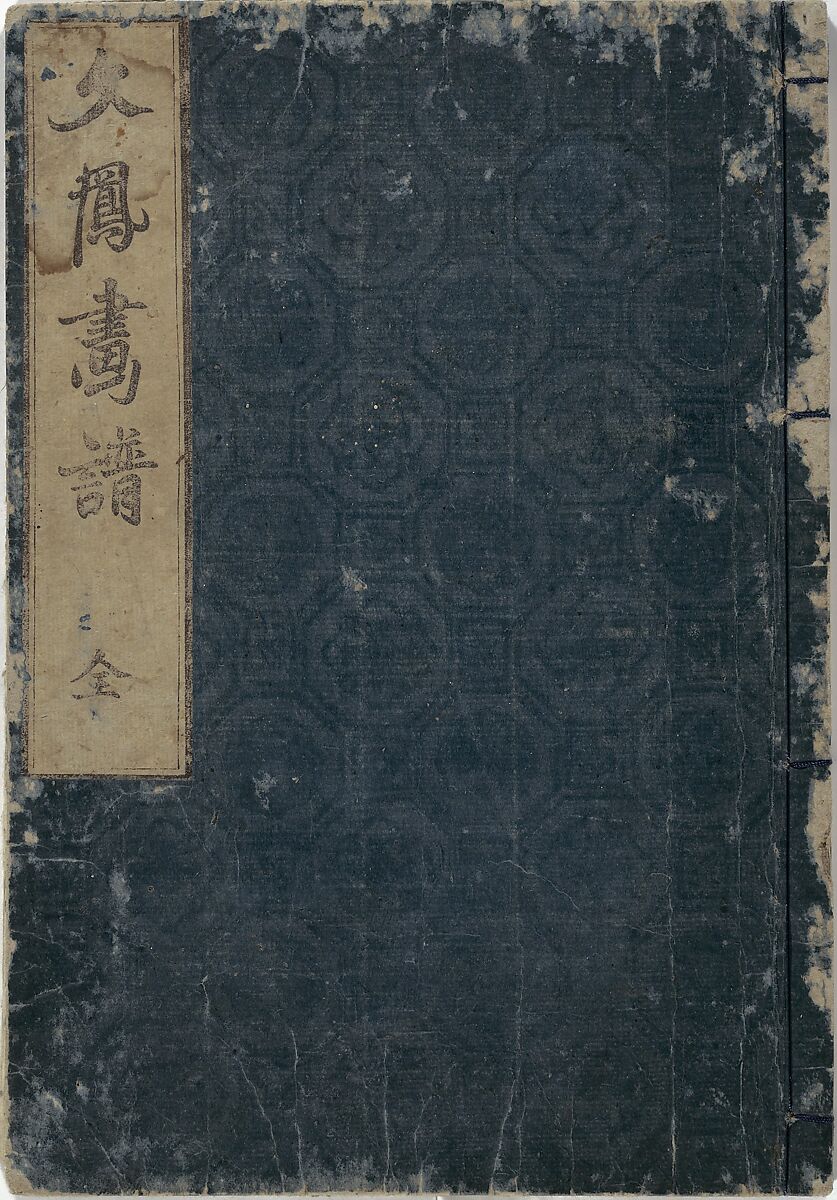 文鳳畫譜 全